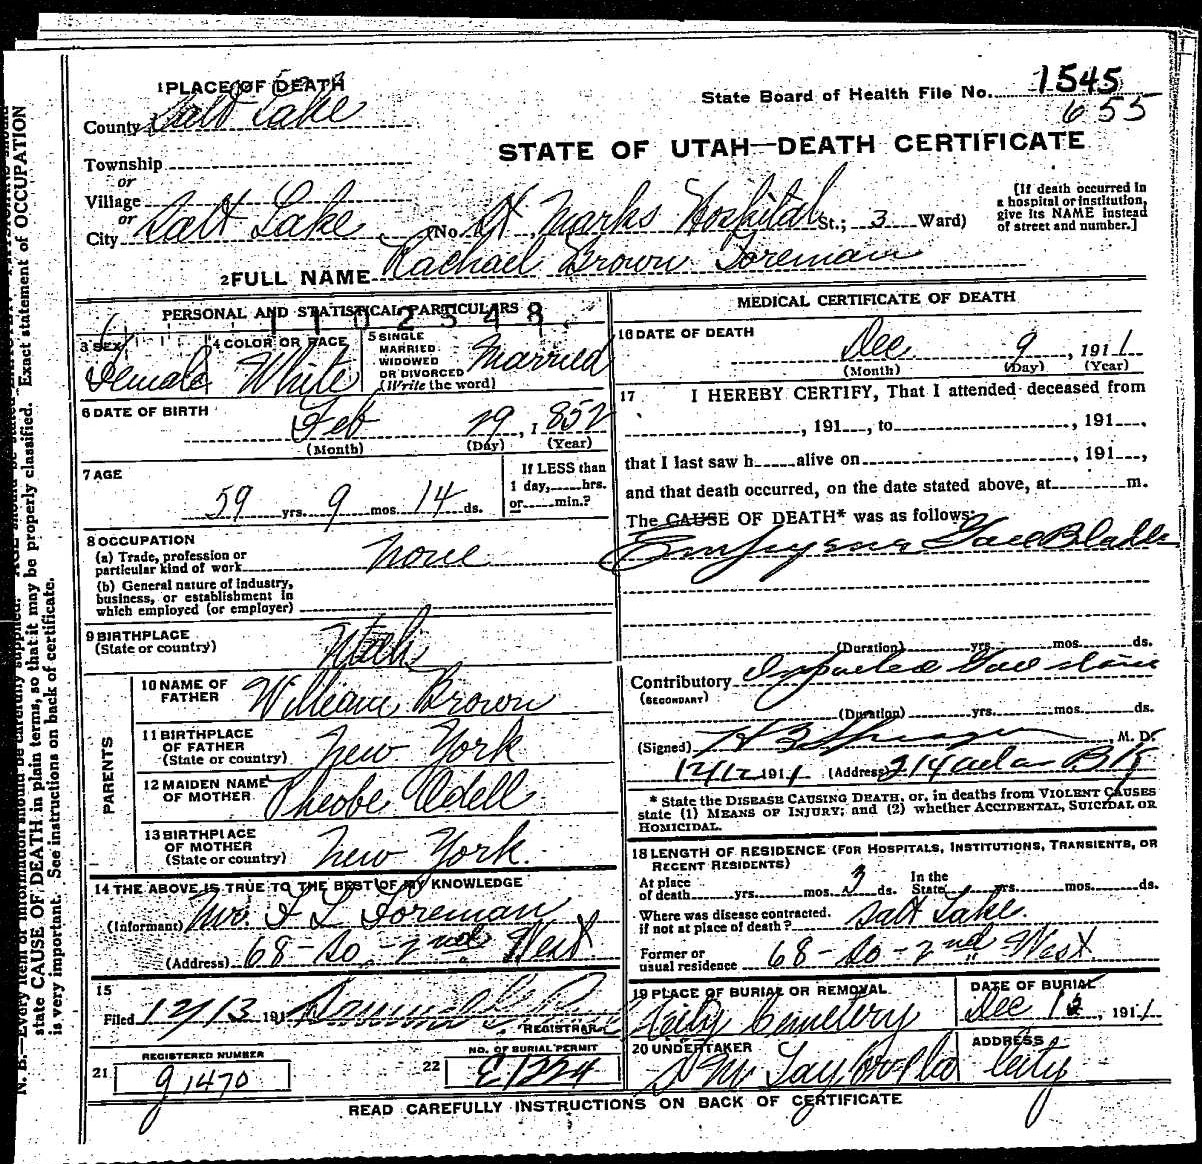 1 PLACE OF DEATH
State Board of Health File No. 1545
655
County Salt Lake
STATE OF UTAH—DEATH CERTIFICATE
Township
or
Village
or
City Salt Lake (No. St Marks Hospital St.; 3 Ward)
[If death occurred in a hospital or institution, give its NAME instead of street and number.]
2 FULL NAME Rachael Brown Foreman
PERSONAL AND STATISTICAL PARTICULARS
1102548
3 SEX Female
4 COLOR OR RACE White
5 SINGLE MARRIED WIDOWED OR DIVORCED (Write the word) Married
6 DATE OF BIRTH Feb 29, 1852
(Month) (Day) (Year)
7 AGE
59 yrs. 9 mos. 14 ds.
If LESS than 1 day, hrs. or min.?
8 OCCUPATION
(a) Trade, profession or particular kind of work none
(b) General nature of industry, business, or establishment in which employed (or employer)
9 BIRTHPLACE (State or country) Utah
PARENTS
10 NAME OF FATHER William Brown
11 BIRTHPLACE OF FATHER (State or country) New York
12 MAIDEN NAME OF MOTHER Pheobe Odell
13 BIRTHPLACE OF MOTHER (State or country) New York.
14 THE ABOVE IS TRUE TO THE BEST OF MY KNOWLEDGE
(Informant) F L Foreman
(Address) 68-So-2nd West
15
Filed 12/13 191
REGISTRAR
REGISTERED NUMBER
21 91470
NO. OF BURIAL PERMIT
22 E1224
MEDICAL CERTIFICATE OF DEATH
16 DATE OF DEATH
Dec. 9, 1911
(Month) (Day) (Year)
17 I HEREBY CERTIFY, That I attended deceased from
, 191 , to , 191 ,
that I last saw h alive on , 191 ,
and that death occurred, on the date stated above, at m.
The CAUSE OF DEATH* was as follows:
Empyema Gall Bladder
(Duration) yrs. mos. ds.
Contributory (SECONDARY) Impacted Gall stone
(Duration) yrs. mos. ds.
(Signed) , M. D.
12/12 1911 (Address) 214
* State the DISEASE CAUSING DEATH, or, in deaths from VIOLENT CAUSES state (1) MEANS OF INJURY; and (2) whether ACCIDENTAL, SUICIDAL OR HOMICIDAL.
18 LENGTH OF RESIDENCE (FOR HOSPITALS, INSTITUTIONS, TRANSIENTS, OR RECENT RESIDENTS)
At place of death yrs. mos. 3 ds. In the State yrs. mos. ds.
Where was disease contracted. if not at place of death? Salt Lake.
Former or usual residence 68-So-2nd West.
19 PLACE OF BURIAL OR REMOVAL City Cemetery
DATE OF BURIAL Dec 13, 1911
20 UNDERTAKER S M Taylor & Co
ADDRESS City
READ CAREFULLY INSTRUCTIONS ON BACK OF CERTIFICATE
N. B.—Every item of information should be carefully supplied. AGE should be stated Exact statement of OCCUPATION
state CAUSE OF DEATH in plain terms, so that it may be properly classified.
is very important. See instructions on back of certificate.